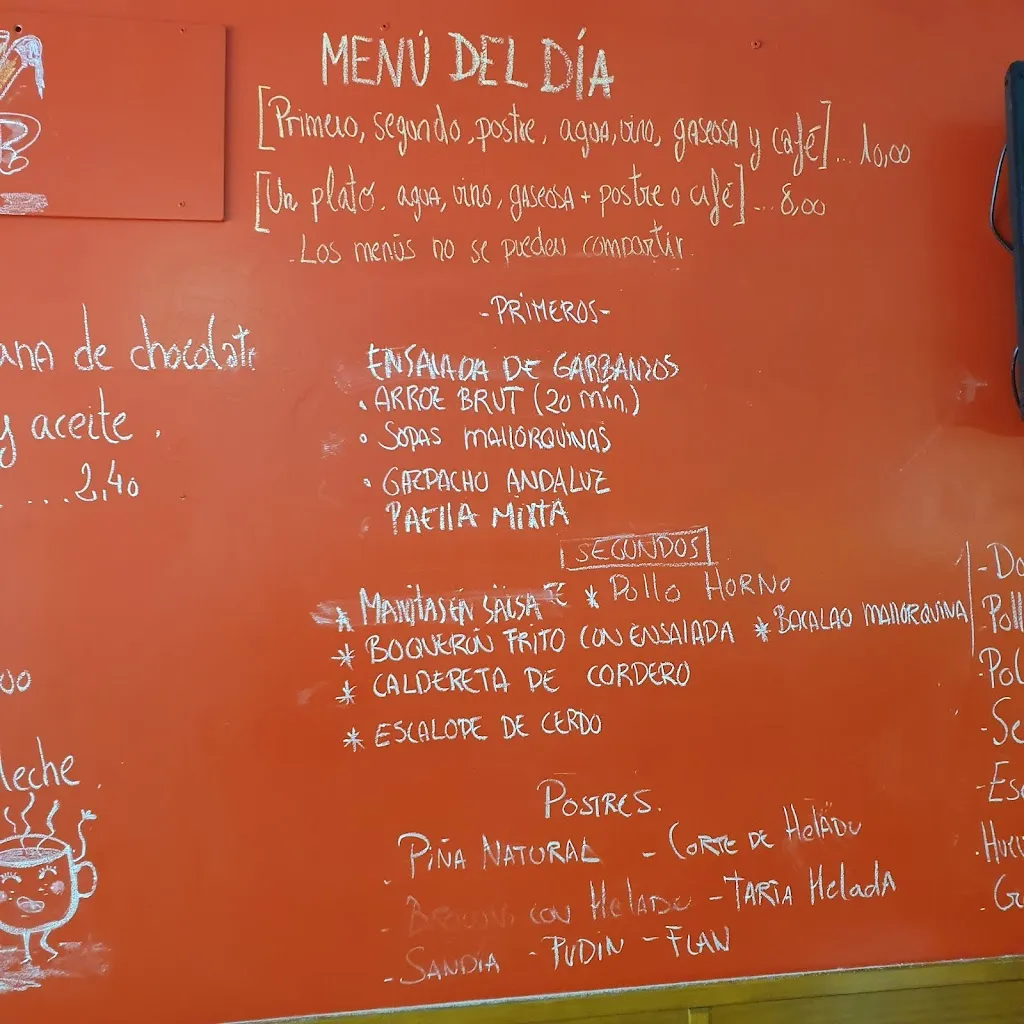 MENÚ DEL DÍA
[Primero, segundo, postre, agua, vino, gaseosa y café]... 10,00
[Un plato. agua, vino, gaseosa + postre o café]... 8,00
. Los menús no se pueden compartir.
-PRIMEROS-
ENSALADA DE GARBANZOS
• ARROZ BRUT (20 min.)
• SOPAS MALLORQUINAS
• GAZPACHO ANDALUZ
PAELLA MIXTA
SEGUNDOS
* MANITAS EN SALSA * POLLO HORNO
* BOQUERÓN FRITO CON ENSALADA * BACALAO MALLORQUINA
* CALDERETA DE CORDERO
* ESCALOPE DE CERDO
POSTRES.
- PIÑA NATURAL - CORTE DE HELADO
- CON HELADO - TARTA HELADA
- SANDÍA - PUDIN - FLAN
de chocolate
y aceite .
....2,40
leche .